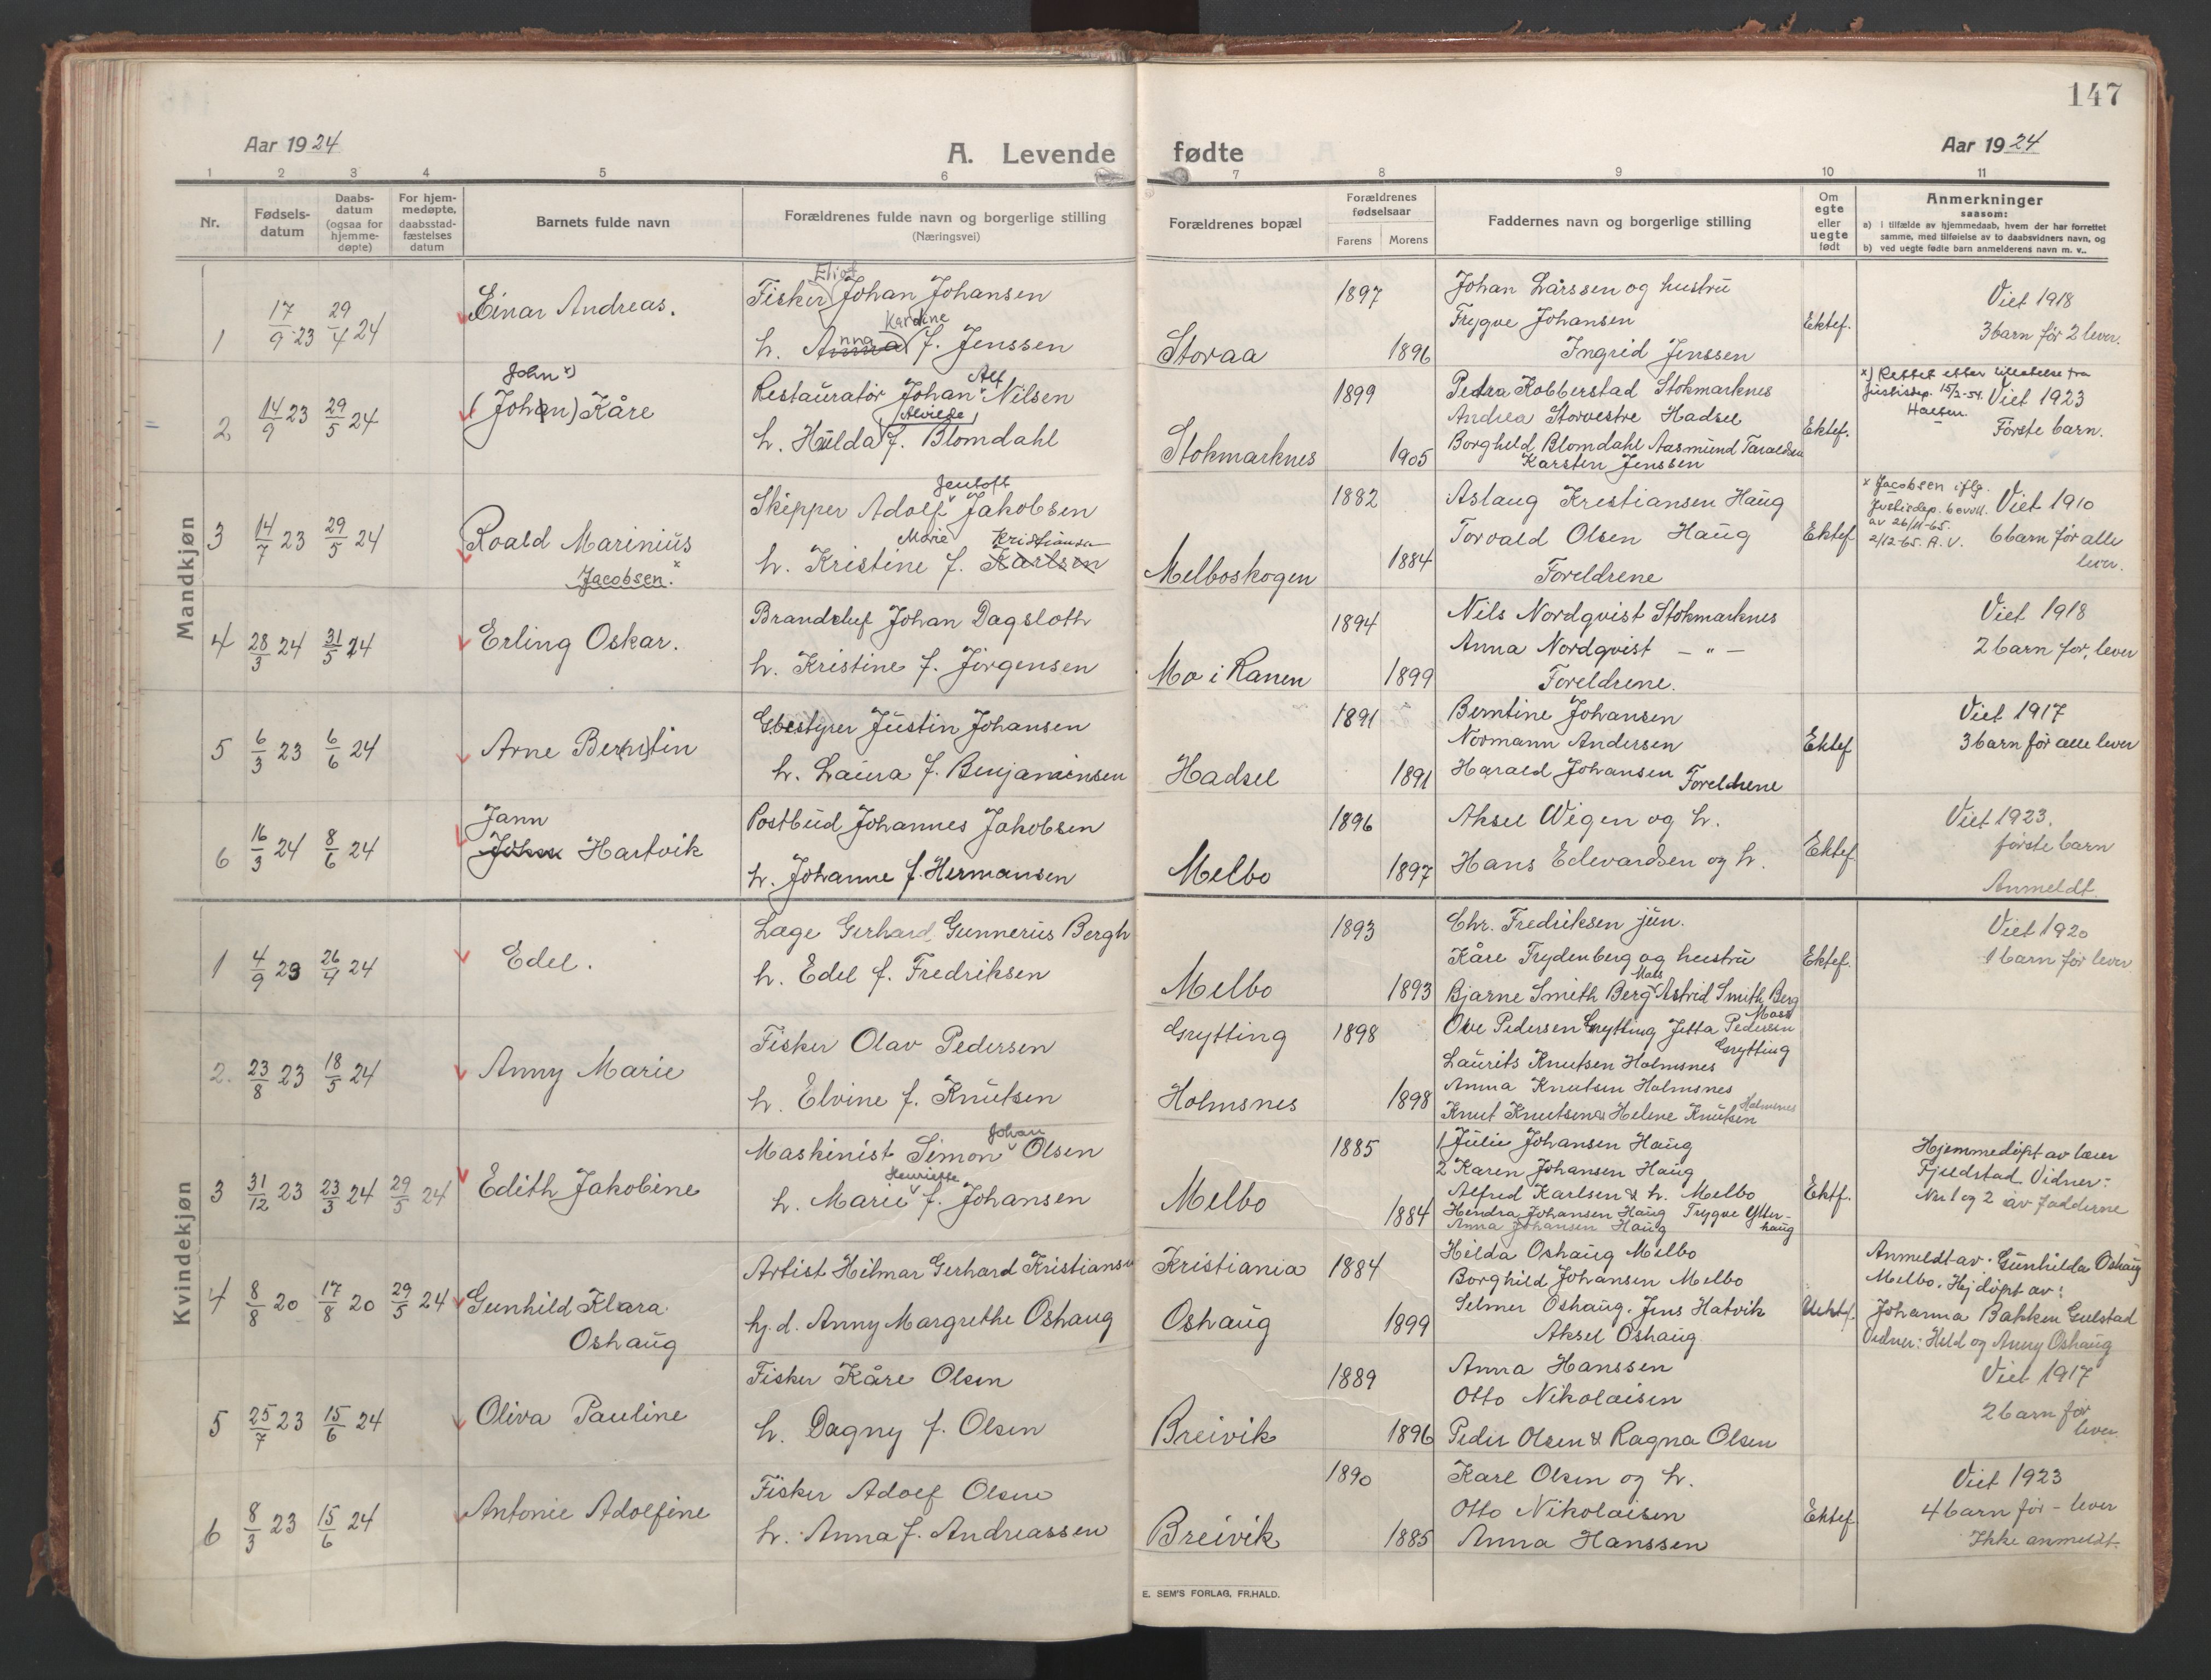 147
Aar 1924
A. Levende fødte
Aar 1924
1 2 3 4 5 6 7 8 9 10 11
Nr.
Fødsels-
datum
Daabs-
datum
(ogsaa for
hjemme-
døpte)
For hjem-
medøpte,
daabsstad-
fæstelses
datum
Barnets fulde navn
Forældrenes fulde navn og borgerlige stilling
(Næringsvei)
Forældrenes bopæl
Forældrenes
fødselsaar
Farens Morens
Faddernes navn og borgerlige stilling
Om
egte
eller
uegte
født
Anmerkninger
saasom:
a) i tilfælde av hjemmedaab, hvem der har forrettet
samme, med tilføielse av to daabsvidners navn, og
b) ved uegte fødte barn anmelderens navn m. v..
Mandkjøn
1 17/9 23 29/4 24
Einar Andreas.
Eliot
Fisker Johan Johansen
Kardine
h. Anna f. Jenssen
Storaa
1897
1896
Johan Larssen og hustru
Trygve Johansen
Ingrid Jenssen
Ektef.
Viet 1918
3 barn før 2 lever.
2 14/9 23 29/5 24
John x)
(Johan) Kåre
Alf
Restauratør Johan Nilsen
Alvilde
h. Hulda f. Blomdahl
Stokmarknes
1899
1905
Petra Kobberstad Stokmarknes
Andrea Storvestre Hadsel
Borghild Blomdahl Aasmund Taraldsen
Karsten Jenssen
Ektef.
x) Rettet etter tillatelse fra
Justisdep. 15/2-54.
Viet 1923
Første barn.
3 14/7 23 29/5 24
Roald Marinius
Jacobsen. x
Jentoft
Skipper Adolf Jakobsen
Marie Kristiansen
h. Kristine f. Karlsen
Melboskogen
1882
1884
Aslaug Kristiansen Haug
Torvald Olsen Haug
Foreldrene
Ektef
x Jacobsen iflg.
Justisdep. bevill.
av 26/11-65.
2/12-65. A. V.
Viet 1910
6 barn før alle
lever.
4 28/3 24 31/5 24
Erling Oskar.
Brandchef Johan Dagsloth
h. Kristine f. Jørgensen
Mo i Ranen
1894
1899
Nils Nordqvist Stokmarknes
Anna Nordqvist — " —
Foreldrene.
Viet 1918
2 barn før, lever
5 6/3 23 6/6 24
Arne Berntin
Gbestyrer Justin Johansen
h. Laura f. Benjaminsen
Hadsel
1891
1891
Berntine Johansen
Normann Andersen
Harald Johansen Foreldrene
Ektef
Viet 1917
3 barn før alle lever
6 16/3 24 8/6 24
Jann
Johan Hartvik
Postbud Johannes Jakobsen
h. Johanne f. Hermansen
Melbo
1896
1897
Aksel Wigen og h.
Hans Edvardsen og h.
Ektef
Viet 1923.
første barn
Anmeldt
Kvindekjøn
1 4/9 23 26/4 24
Edel.
Læge Gerhard Gunnerius Bergh
h. Edel f. Fredriksen
Melbo
1893
1893
Chr. Fredriksen jun.
Kåre Frydenberg og hustru
Bjarne Smith Berg Astrid Smith Berg
Ektef.
Viet 1920
1 barn før lever
2. 23/8 23 18/5 24
Anny Marie
Fisker Olav Pedersen
h. Elvine f. Knutsen
Grytting
Holmsnes
1898
1898
Ove Pedersen Grytting Jetta Pedersen
Grytting
Laurits Knutsen Holmsnes
Anna Knutsen Holmsnes
Knut Knutsen & Helene Knutsen Holmsnes
3 31/12 23 23/3 24 29/5 24
Edith Jakobine
Johan
Maskinist Simon Olsen
Henriette
h. Marie f. Johansen
Melbo
1885
1884
1 Julie Johansen Haug
2 Karen Johansen Haug
Alfred Karlsen & h. Melbo
Hendra Johansen Haug Trygve Ytter-
haug
Anna Johansen Haug
Ektf.
Hjemmedøpt av lærer
Fjeldstad Vidner:
Nr 1 og 2 av fadderne
4 8/8 20 17/8 20 29/5 24
Gunhild Klara
Oshaug
Artist Hilmar Gerhard Kristiansen
hj. d. Anny Margrethe Oshaug
Kristiania
Oshaug
1884
1899
Hilda Oshaug Melbo
Borghild Johansen Melbo
Selmer Oshaug. Jens Hatvik
Aksel Oshaug
Uektf.
Anmeldt av: Gunhilda Oshaug
Melbo. Hj døpt av:
Johanna Bakken Gulstad
Vidner: Hild og Anny Oshaug
5 25/7 23 15/6 24
Oliva Pauline
Fisker Kåre Olsen
h. Dagny f. Olsen
Breivik
1889
1896
Anna Hanssen
Otto Nikolaisen
Peder Olsen & Ragna Olsen
Viet 1917
2 barn før
lever
6 8/3 23 15/6 24
Antonie Adolfine
Fisker Adolf Olsen
h. Anna f. Andreassen
Breivik
1890
1885
Karl Olsen og h.
Otto Nikolaisen
Anna Hanssen
Ektef
Viet 1923
4 barn før – lever
Ikke anmeldt.
E. SEM'S FORLAG, FR.HALD.